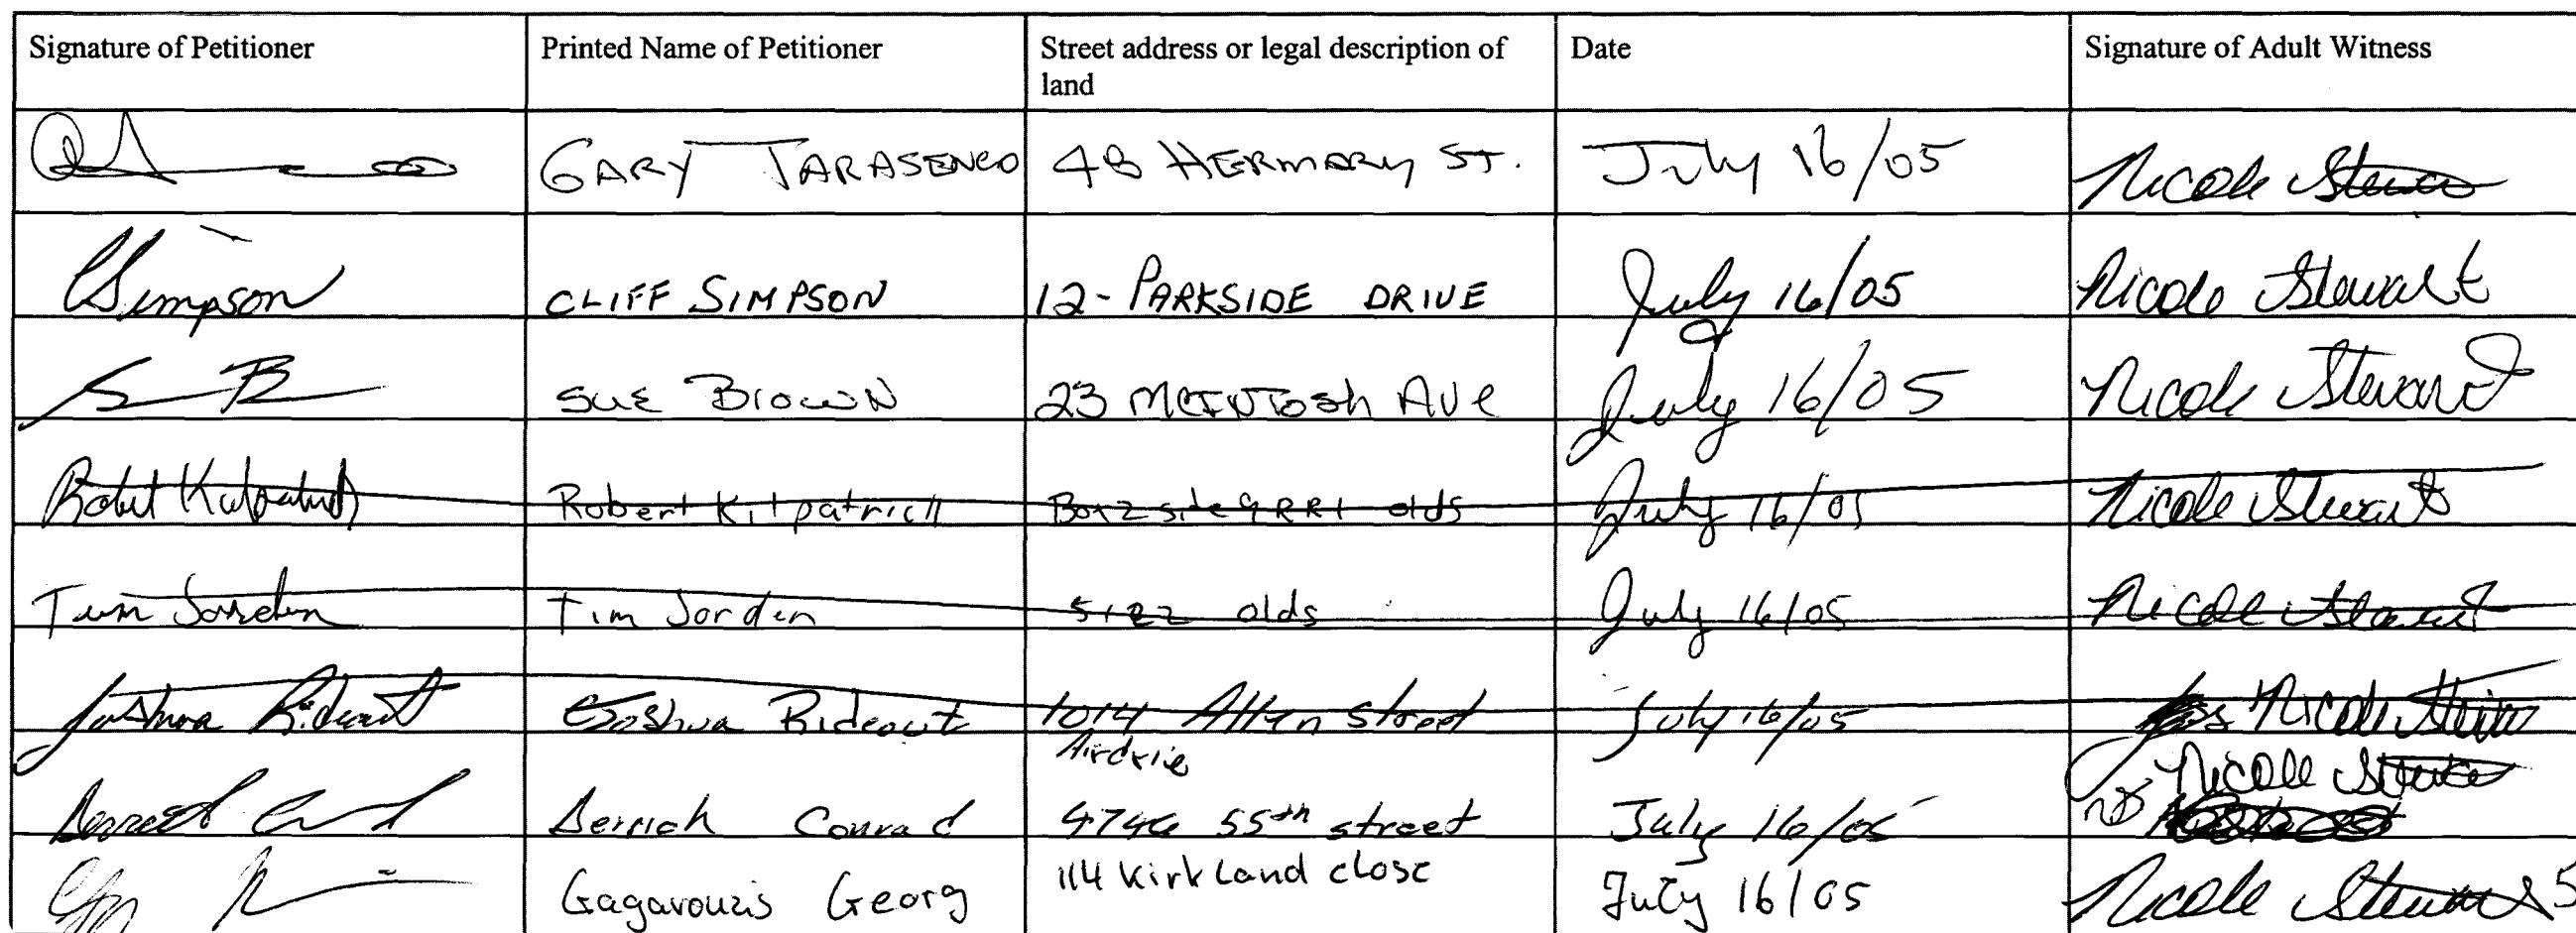 Signature of Petitioner Printed Name of Petitioner Street address or legal description of land Date Signature of Adult Witness
GARY TARASENCO 48 HERMARY ST. July 16/05 Nicole Stewart
CSimpson CLIFF SIMPSON 12-PARKSIDE DRIVE July 16/05 Nicole Stewart
SUE BROWN 23 MCINTosh AVe July 16/05 Nicole Stewart
Robert Kilpatrick Robert Kilpatrick Box 2 site 9 RR1 olds July 16/05 Nicole Stewart
Tim Jorden Tim Jorden olds July 16/05 Nicole Stewart
Joshua Rideout Joshua Rideout 1014 Allen street July 16/05 Nicole Stewart
Airdrie
Derrick Conrad 55th street July 16/05 Nicole Stewart
NS
Gagavouzis Georg 114 Kirkland close July 16/05 Nicole Stewart